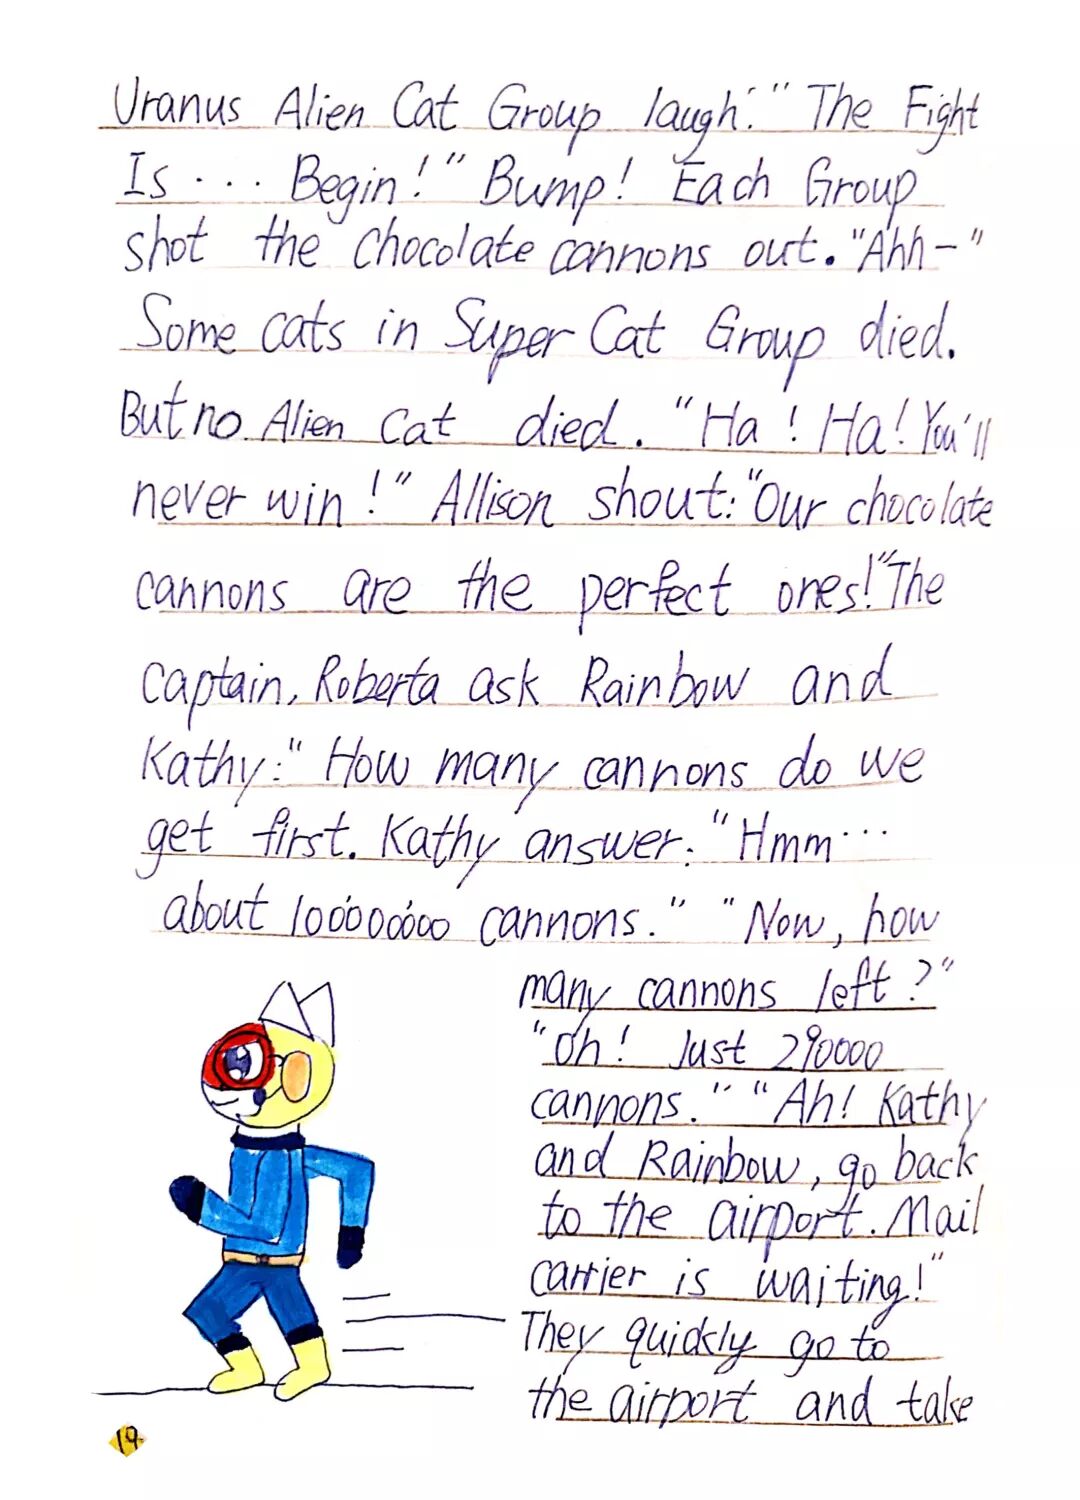 Uranus Alien Cat Group laugh: "The Fight
Is ... Begin!" Bump! Each Group
shot the chocolate cannons out. "Ahh-"
Some cats in Super Cat Group died.
But no Alien Cat died. "Ha! Ha! You'll
never win!" Allison shout: "Our chocolate
cannons are the perfect ones!" The
captain, Roberta ask Rainbow and
Kathy: "How many cannons do we
get first. Kathy answer: "Hmm...
about 100000000 cannons." "Now, how
many cannons left?"
"Oh! Just 290000
cannons." "Ah! Kathy
and Rainbow, go back
to the airport. Mail
carrier is waiting!"
They quickly go to
the airport and take
19